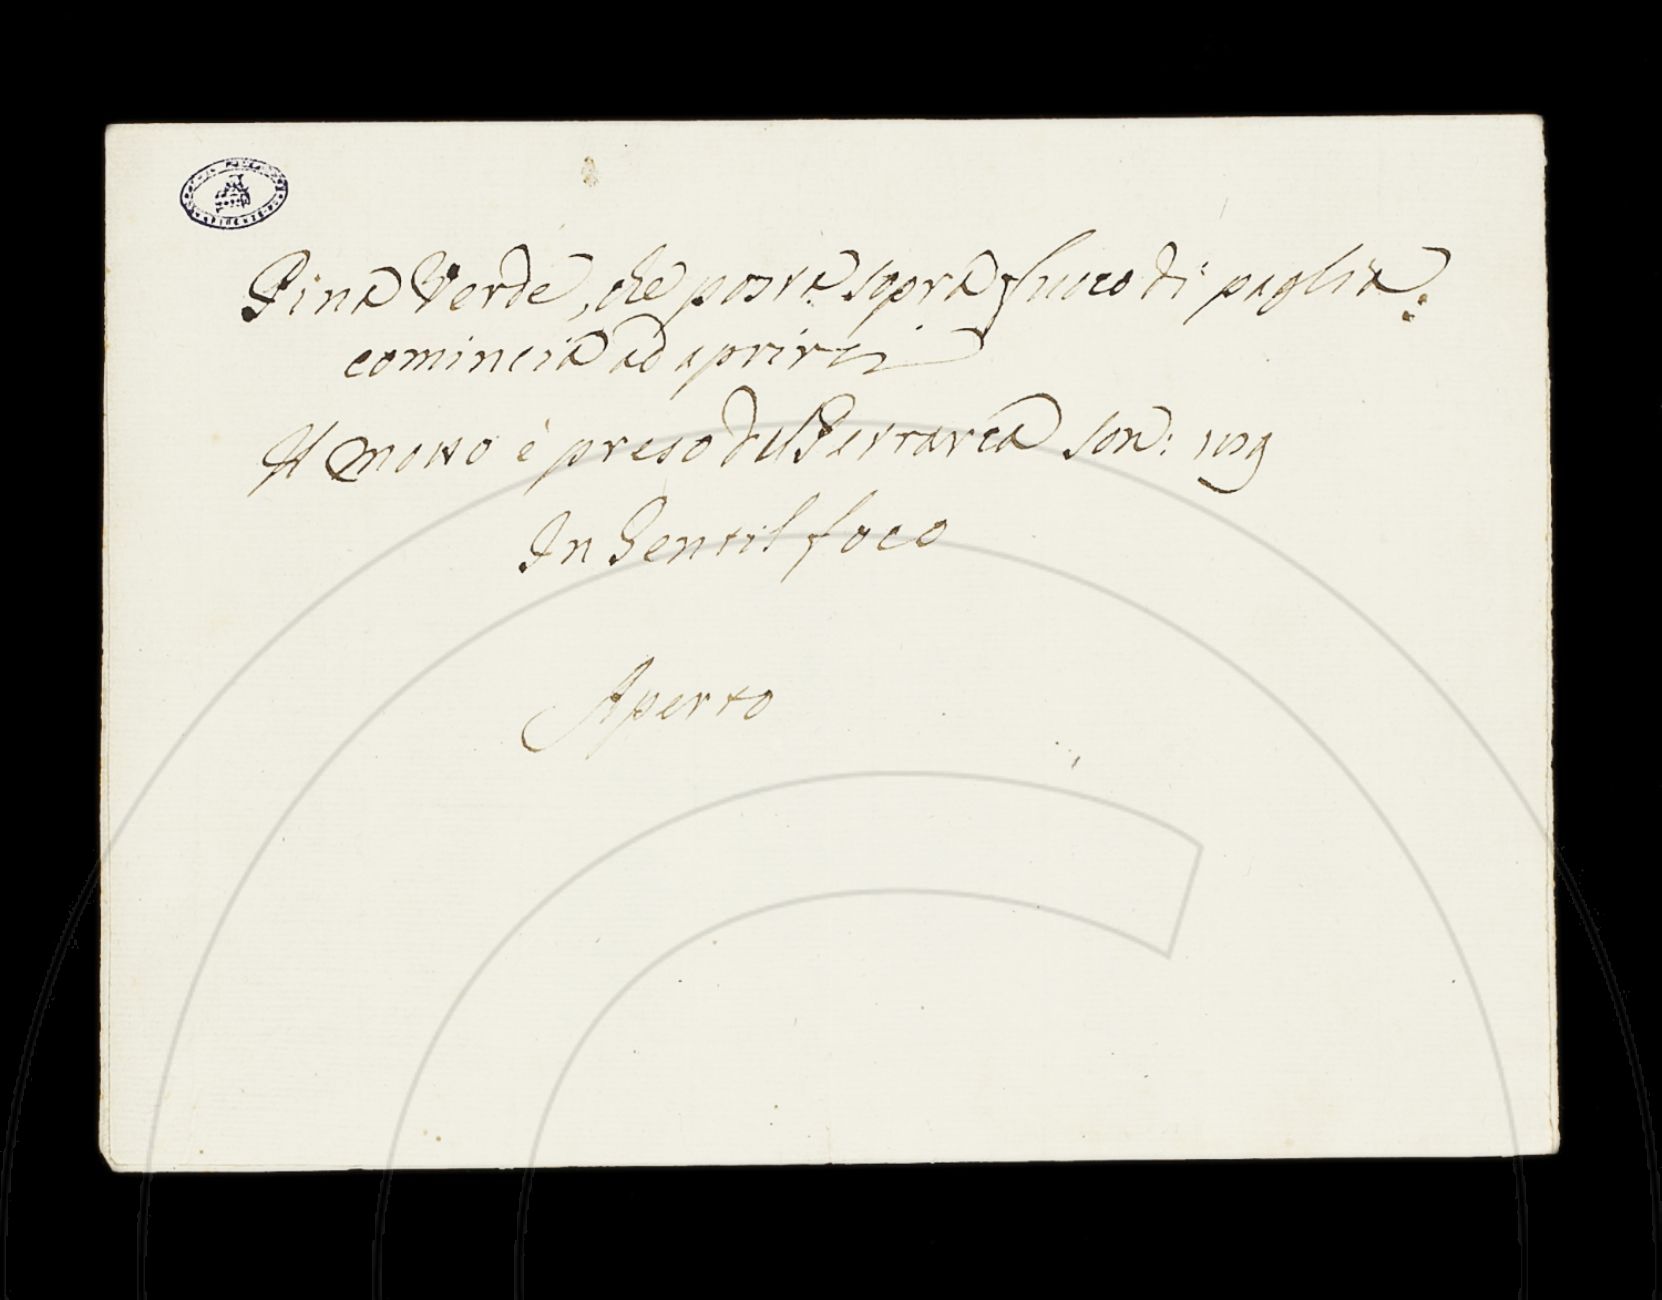 Pina Verde, che posta sopra fuoco di paglia
comincia ad aprirsi
Il motto è preso del Petrarca Son:
In Gentil foco
Aperto